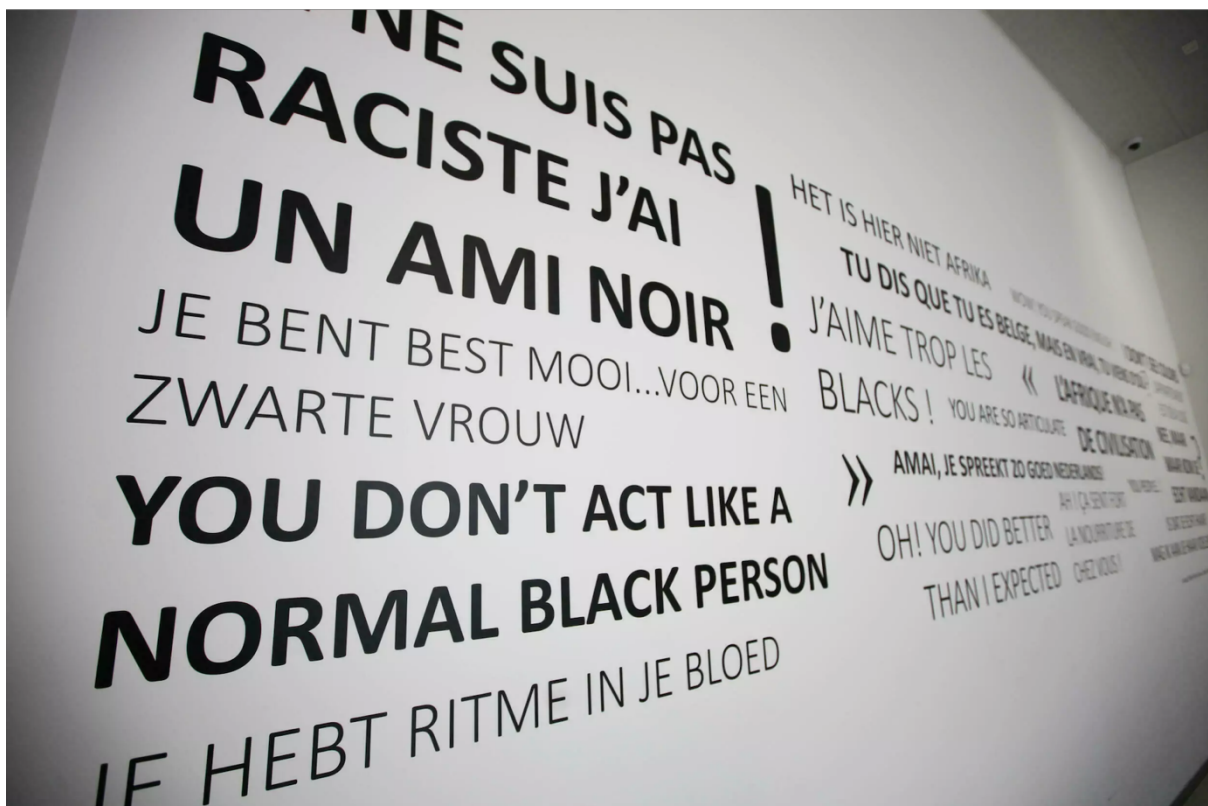 NE SUIS PAS
RACISTE J'AI
UN AMI NOIR !
JE BENT BEST MOOI...VOOR EEN
ZWARTE VROUW
YOU DON'T ACT LIKE A
NORMAL BLACK PERSON
JE HEBT RITME IN JE BLOED
HET IS HIER NIET AFRIKA
TU DIS QUE TU ES BELGE, MAIS EN VRAI, TU VIENS D'OÙ ?
J'AIME TROP LES
BLACKS !
YOU ARE SO ARTICULATE
« L'AFRIQUE N'A PAS
DE CIVILISATION »
AMAI, JE SPREEKT ZO GOED NEDERLANDS!
OH! YOU DID BETTER
THAN I EXPECTED
AH ! ÇA SENT FORT
LA NOURRITURE DE
CHEZ VOUS !
I DON'T SEE COLOUR
NEE, MAAR